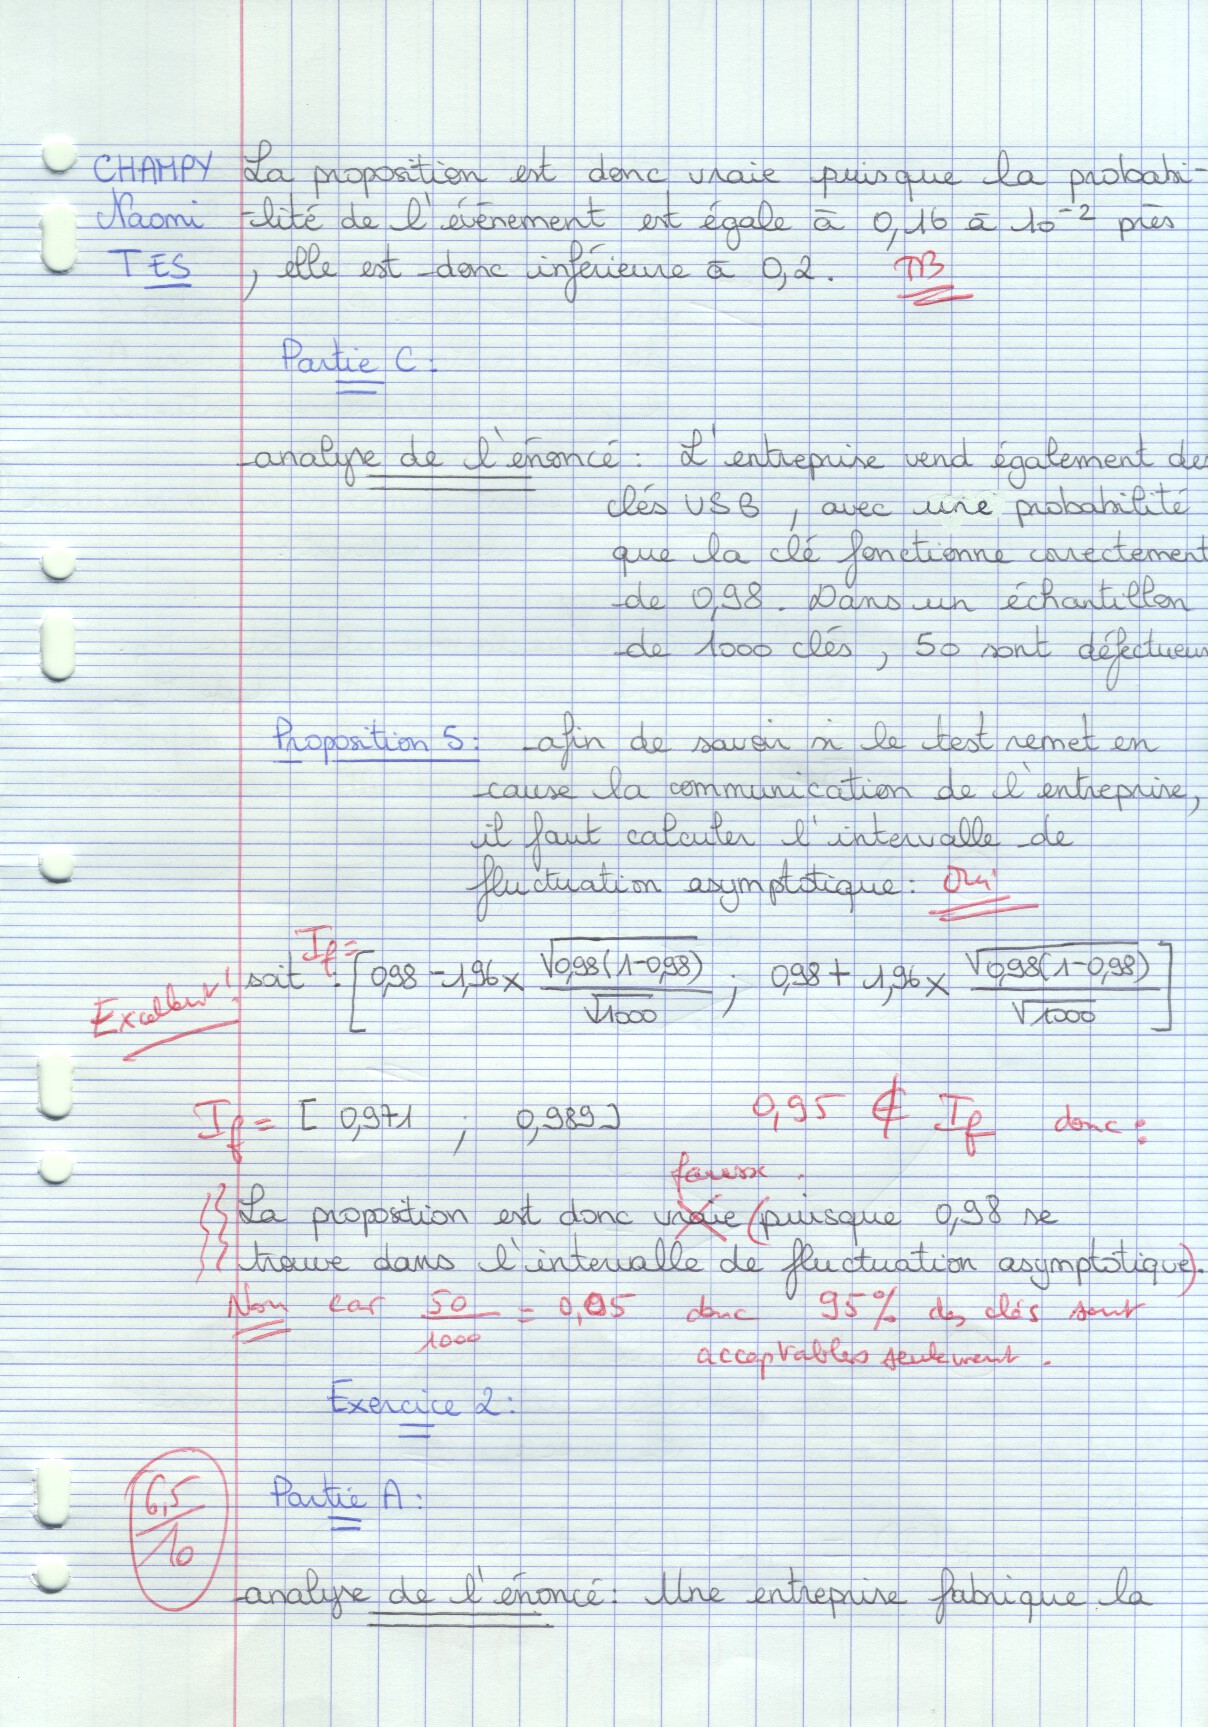 CHAMPY La proposition est donc vraie puisque la probabi-
Naomi -lité de l'évènement est égale à 0,16 à 10⁻² près
TES , elle est donc inférieure à 0,2. TB
Partie C :
analyse de l'énoncé : L'entreprise vend également de
clés USB, avec une probabilité
que la clé fonctionne correctement
de 0,98. Dans un échantillon
de 1000 clés, 50 sont défectueus
Proposition 5 : afin de savoir si le test remet en
cause la communication de l'entreprise,
il faut calculer l'intervalle de
fluctuation asymptotique : Oui
If =
Excellent ! soit : [0,98 - 1,96 × √0,98(1-0,98) / √1000 ; 0,98 + 1,96 × √0,98(1-0,98) / √1000]
If = [ 0,971 ; 0,989 ] 0,95 ∉ If donc :
fausse.
La proposition est donc vraie (puisque 0,98 se
trouve dans l'intervalle de fluctuation asymptotique).
Non car 50/1000 = 0,05 donc 95% des clés sont
acceptables seulement.
Exercice 2 :
6,5/10
Partie A :
analyse de l'énoncé : Une entreprise fabrique la